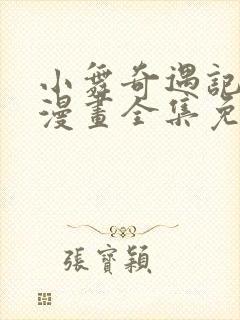 小舞奇遇記
漫畫全集免
張寶穎